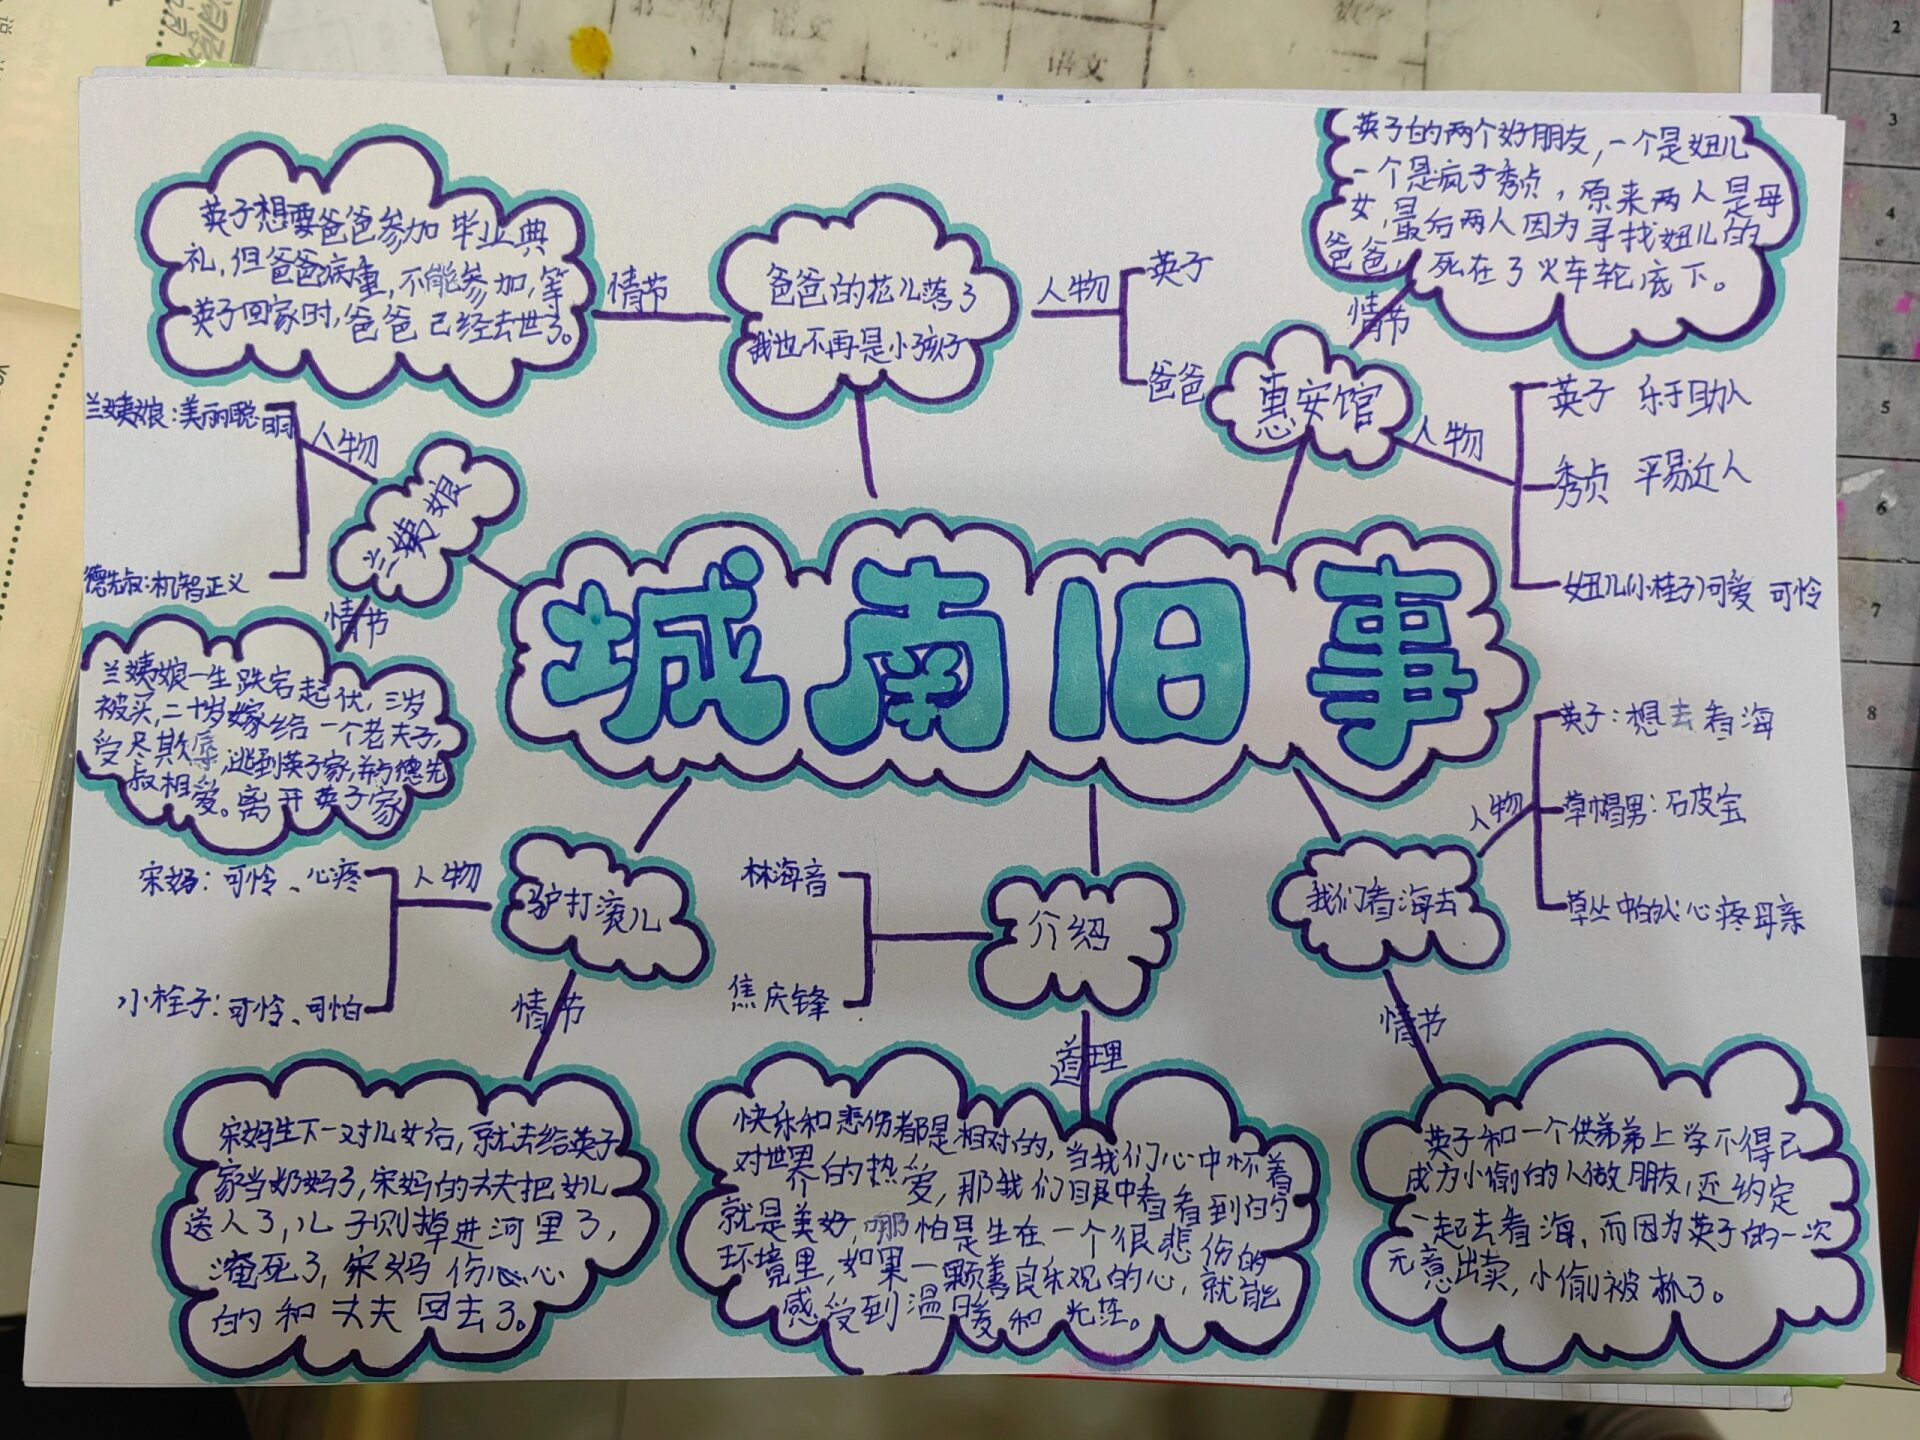 语文
英子想要爸爸参加毕业典
礼,但爸爸病重,不能参加,等
英子回家时,爸爸已经去世了。
情节
爸爸的花儿落了
我也不再是小孩子
人物
英子
爸爸
英子的两个好朋友,一个是妞儿
一个是疯子秀贞,原来两人是母
女,最后两人因为寻找妞儿的
爸爸,死在了火车轮底下。
情节
惠安馆
人物
英子 乐于助人
秀贞 平易近人
妞儿(小桂子)可爱 可怜
兰姨娘:美丽聪明
人物
兰姨娘
德先叔:机智正义
情节
兰姨娘一生跌宕起伏,三岁
被买,二十岁嫁给一个老夫子,
受尽欺辱,逃到英子家,并与德先
叔相爱。离开英子家
城南旧事
英子:想去看海
人物
草帽男:石皮宝
草丛中的人心疼母亲
我们看海去
情节
英子和一个供弟弟上学不得已
成为小偷的人做朋友,还约定
一起去看海,而因为英子的一次
无意出卖,小偷被抓了。
宋妈:可怜、心疼
人物
驴打滚儿
小栓子:可怜、可怕
情节
宋妈生下一对儿女后,就去给英子
家当奶妈了,宋妈的丈夫把女儿
送人了,儿子则掉进河里了,
淹死了,宋妈伤心心
的和丈夫回去了。
林海音
介绍
焦庆锋
道理
快乐和悲伤都是相对的,当我们心中怀着
对世界的热爱,那我们目眼中看看到的
就是美好,哪怕是生在一个很悲伤的
环境里,如果一颗善良乐观的心,就能
感受到温暖和光茫。
2
3
4
5
6
7
8